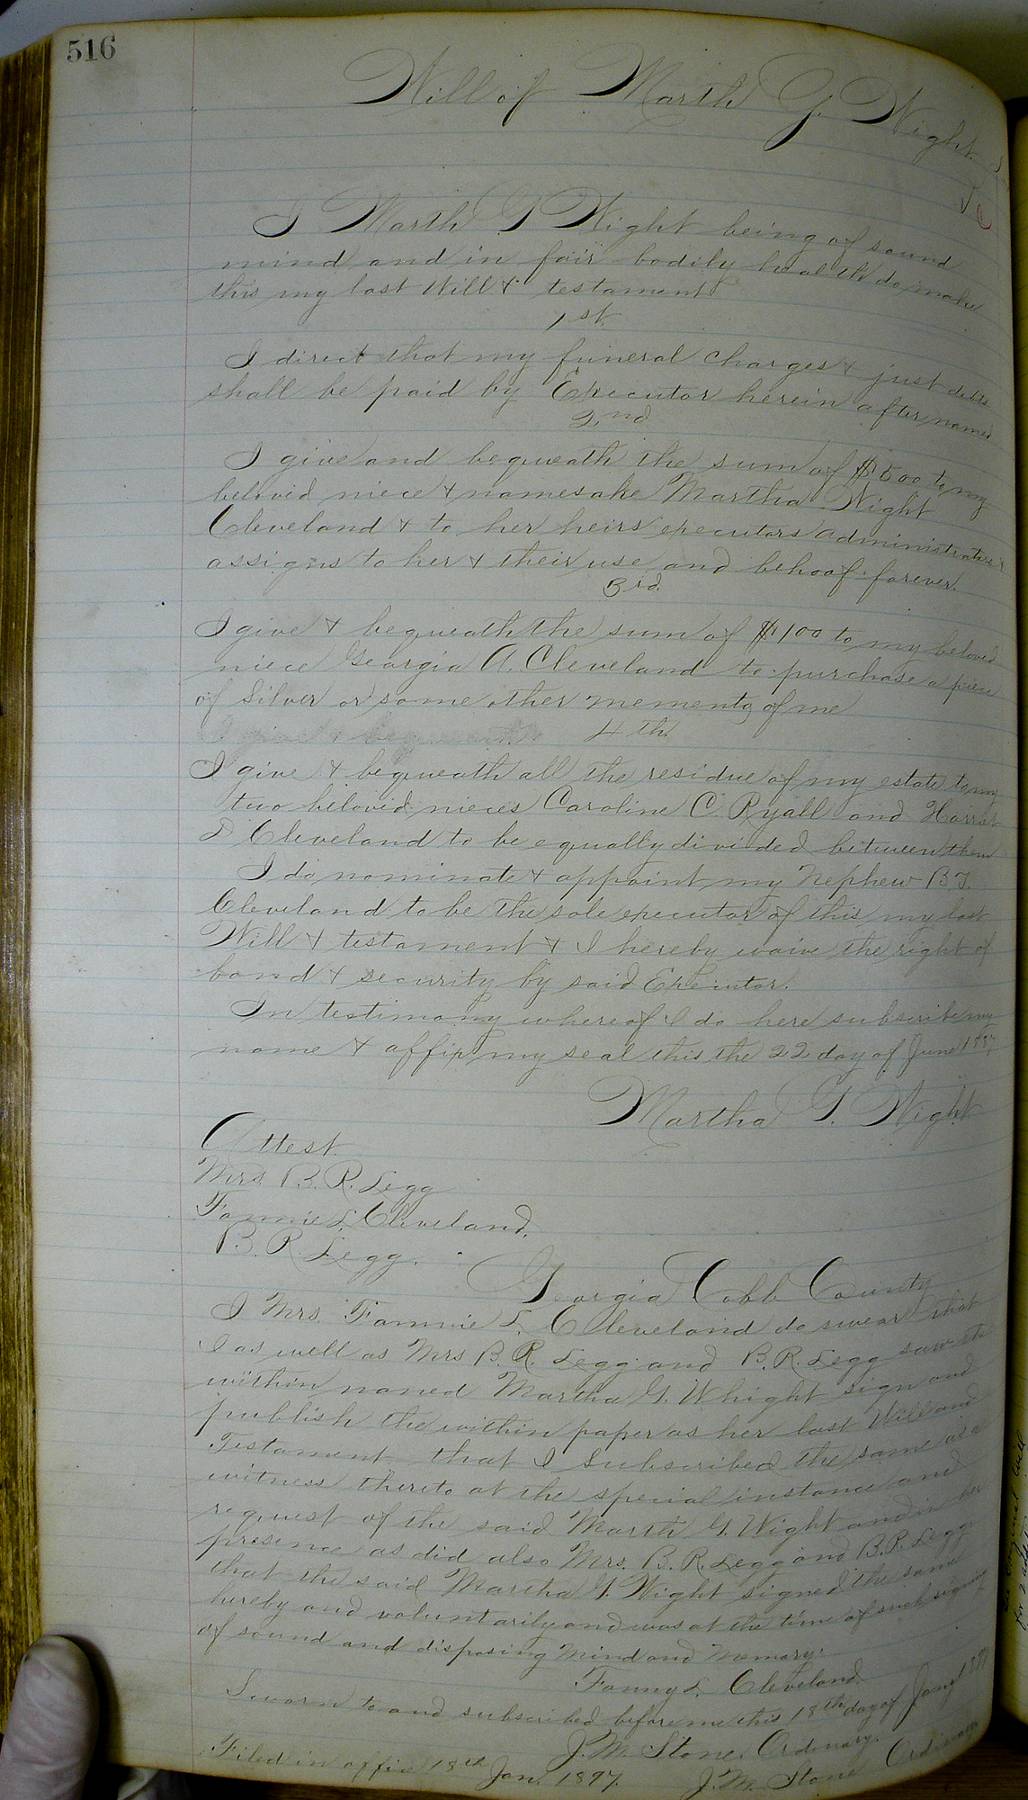 516
Will of Marth G. Wight
I Marth G Wight being of sound
mind and in fair bodily health do make
this my last Will & testament
1st.
I direct that my funeral charges & just debts
shall be paid by Executor herein after named
2nd
I give and bequeath the sum of $500 to my
beloved niece & namesake Martha Wight
Cleveland & to her heirs executors administrators &
assigns to her & their use and behoof forever.
3rd.
I give & bequeath the sum of $100 to my beloved
niece Georgia A. Cleveland to purchase a piece
of Silver or some other memento of me
I give & bequeath 4th.
I give & bequeath all the residue of my estate to my
two beloved nieces Caroline C. Ryall and Harriet
D Cleveland to be equally divided between them
I do nominate & appoint my Nephew B T.
Cleveland to be the sole executor of this my last
Will & testament & I hereby waive the right of
bond & security by said Executor.
In testimony whereof I do here subscribe my
name & affix my seal this the 22 day of June
Martha G. Wight
Attest.
Mrs B. R. Legg
Fannie L. Cleveland.
B. R. Legg.
Georgia Cobb County
I Mrs. Fannie L. Cleveland do swear that
I as well as Mrs B. R. Legg and B. R. Legg saw the
within named Martha G. Whight sign and
publish the within paper as her last Will and
Testament that I Subscribed the same as a
witness thereto at the special instance and
request of the said Marth G. Wight and in her
presence as did also Mrs. B. R. Legg and B. R. Legg
that the said Martha G. Wight signed the same
hereby and voluntarily and was at the time of such signing
of sound and disposing Mind and Memory.
Fanny L. Cleveland.
Sworn to and subscribed before me this 18th day of Jany 1897
J. M. Stone. Ordinary.
Filed in office 18th Jan. 1897. J. M. Stone Ordinary